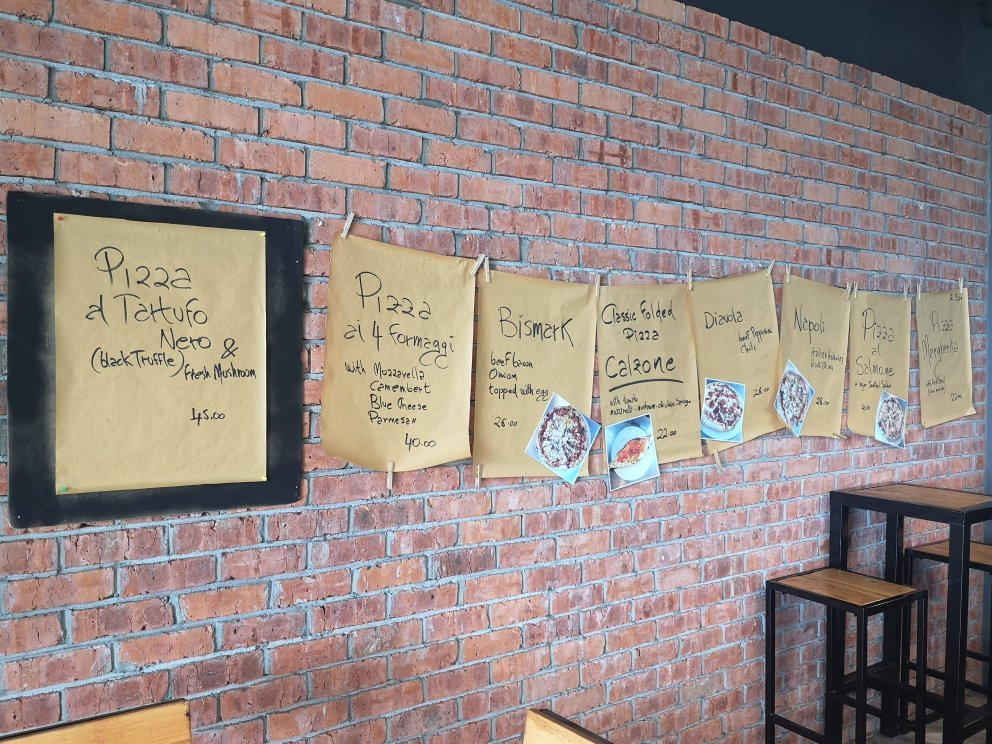 Pizza
al Tartufo
Nero &
(black Truffle) Fresh Mushroom
45.00
Pizza
ai 4 Formaggi
with Mozzarella
Camembert
Blue Cheese
Parmesan
40.00
Bismark
beef bacon
Onion
topped with egg
26.00
Classic Folded
Pizza
Calzone
with tomato
22.00
Diavola
beef Pepperoni
Chili
26.00
Napoli
26.00
Pizza
al
Salmone
Pizza
Margherita
22.00